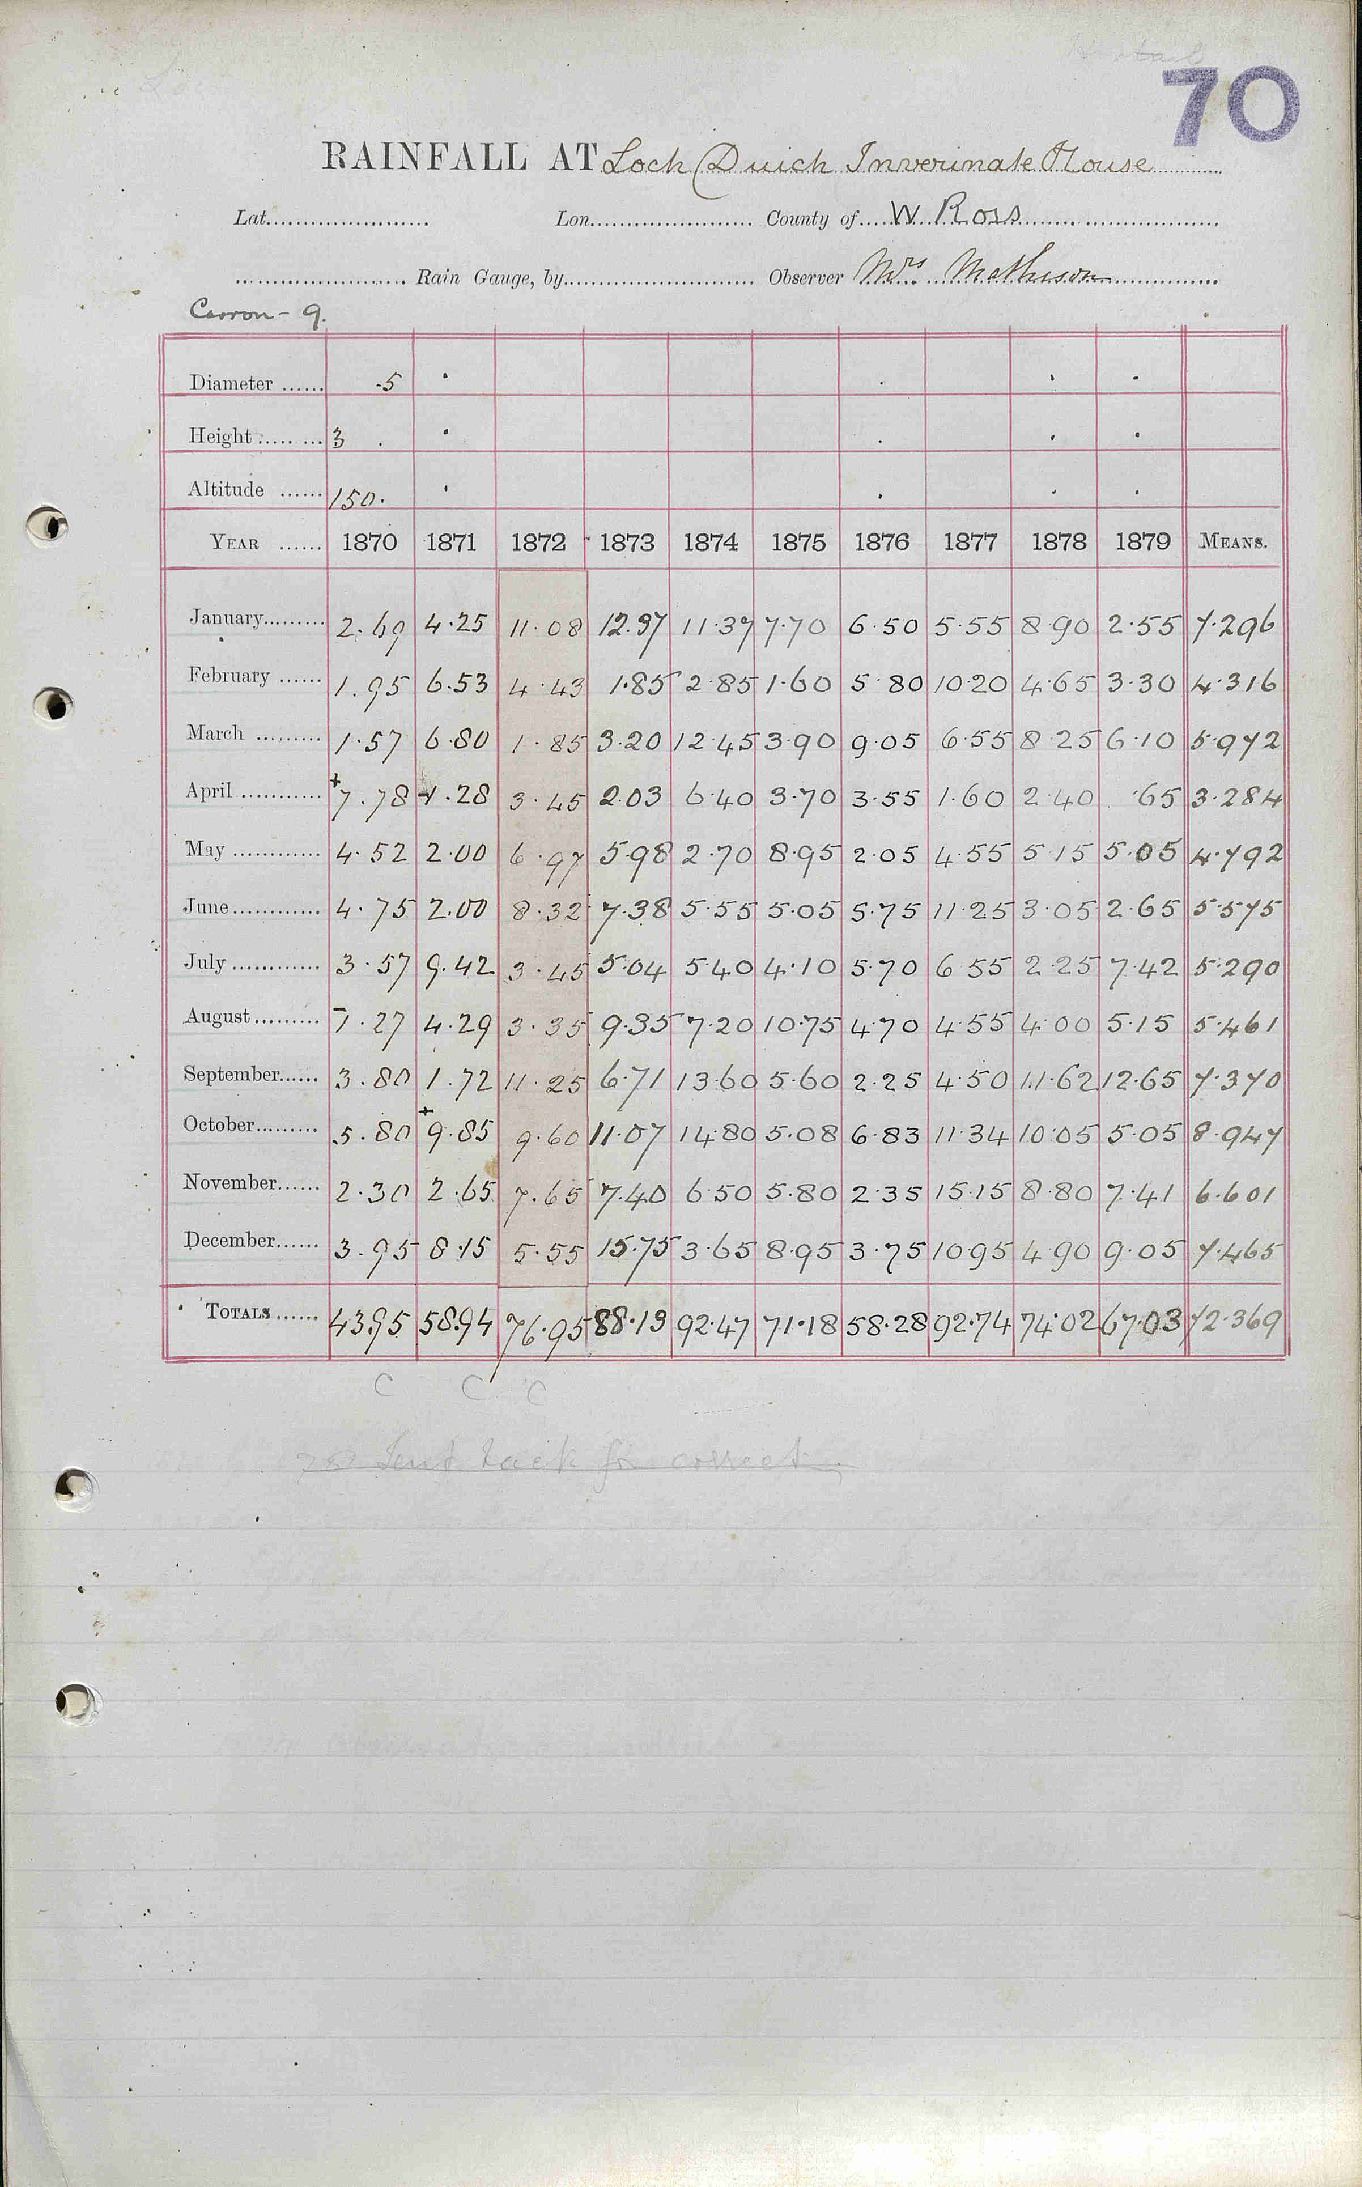 70
RAINFALL AT Loch Duich Inverinate House
Lat. Lon. County of W Ross
Rain Gauge, by Observer Mrs Matheson
Carron - 9.
Diameter ...... .5
Height ...... 3
Altitude ...... 150.
YEAR ...... 1870 1871 1872 1873 1874 1875 1876 1877 1878 1879 MEANS.
January 2.69 4.25 11.08 12.37 11.37 7.70 6.50 5.55 8.90 2.55 7.296
February 1.95 6.53 4.43 1.85 2.85 1.60 5.80 10.20 4.65 3.30 4.316
March 1.57 6.80 1.85 3.20 12.45 3.90 9.05 6.55 8.25 6.10 5.972
April +7.78 1.28 3.45 2.03 6.40 3.70 3.55 1.60 2.40 .65 3.284
May 4.52 2.00 6.97 5.98 2.70 8.95 2.05 4.55 5.15 5.05 4.792
June 4.75 2.00 8.32 7.38 5.55 5.05 5.75 11.25 3.05 2.65 5.575
July 3.57 9.42 3.45 5.04 5.40 4.10 5.70 6.55 2.25 7.42 5.290
August 1.27 4.29 3.35 9.35 7.20 10.75 4.70 4.55 4.00 5.15 5.461
September 3.80 1.72 11.25 6.71 13.60 5.60 2.25 4.50 11.62 12.65 7.370
October 5.80 +9.85 9.60 11.07 14.80 5.08 6.83 11.34 10.05 5.05 8.947
November 2.30 2.65 7.65 7.40 6.50 5.80 2.35 15.15 8.80 7.41 6.601
December 3.95 8.15 5.55 15.75 3.65 8.95 3.75 10.95 4.90 9.05 7.465
TOTALS 43.95 58.94 76.95 88.13 92.47 71.18 58.28 92.74 74.02 67.03 72.369
C C C
Sent back for correct